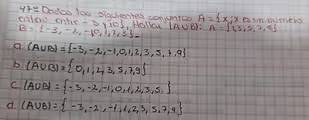 47= Dados los siguientes conjuntos A={x/x es un número
entero entre -3, 10}, Hallar (AUB): A-{1,3,5,7,9}
B={-3,-2,-1,0,1,2,3}.
a (AUB)={-3,-2,-1,0,1,2,3,5,7,9}
b (AUB)={0,1,2,3,5,7,9}
c (AUB)={-3,-2,-1,0,1,2,3,5,}
d. (AUB)={-3,-2,-1,1,2,3,5,7,9}